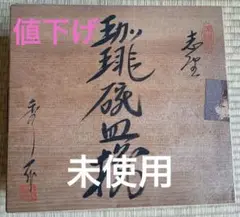 値下げ
志野
珈琲碗皿揃
未使用